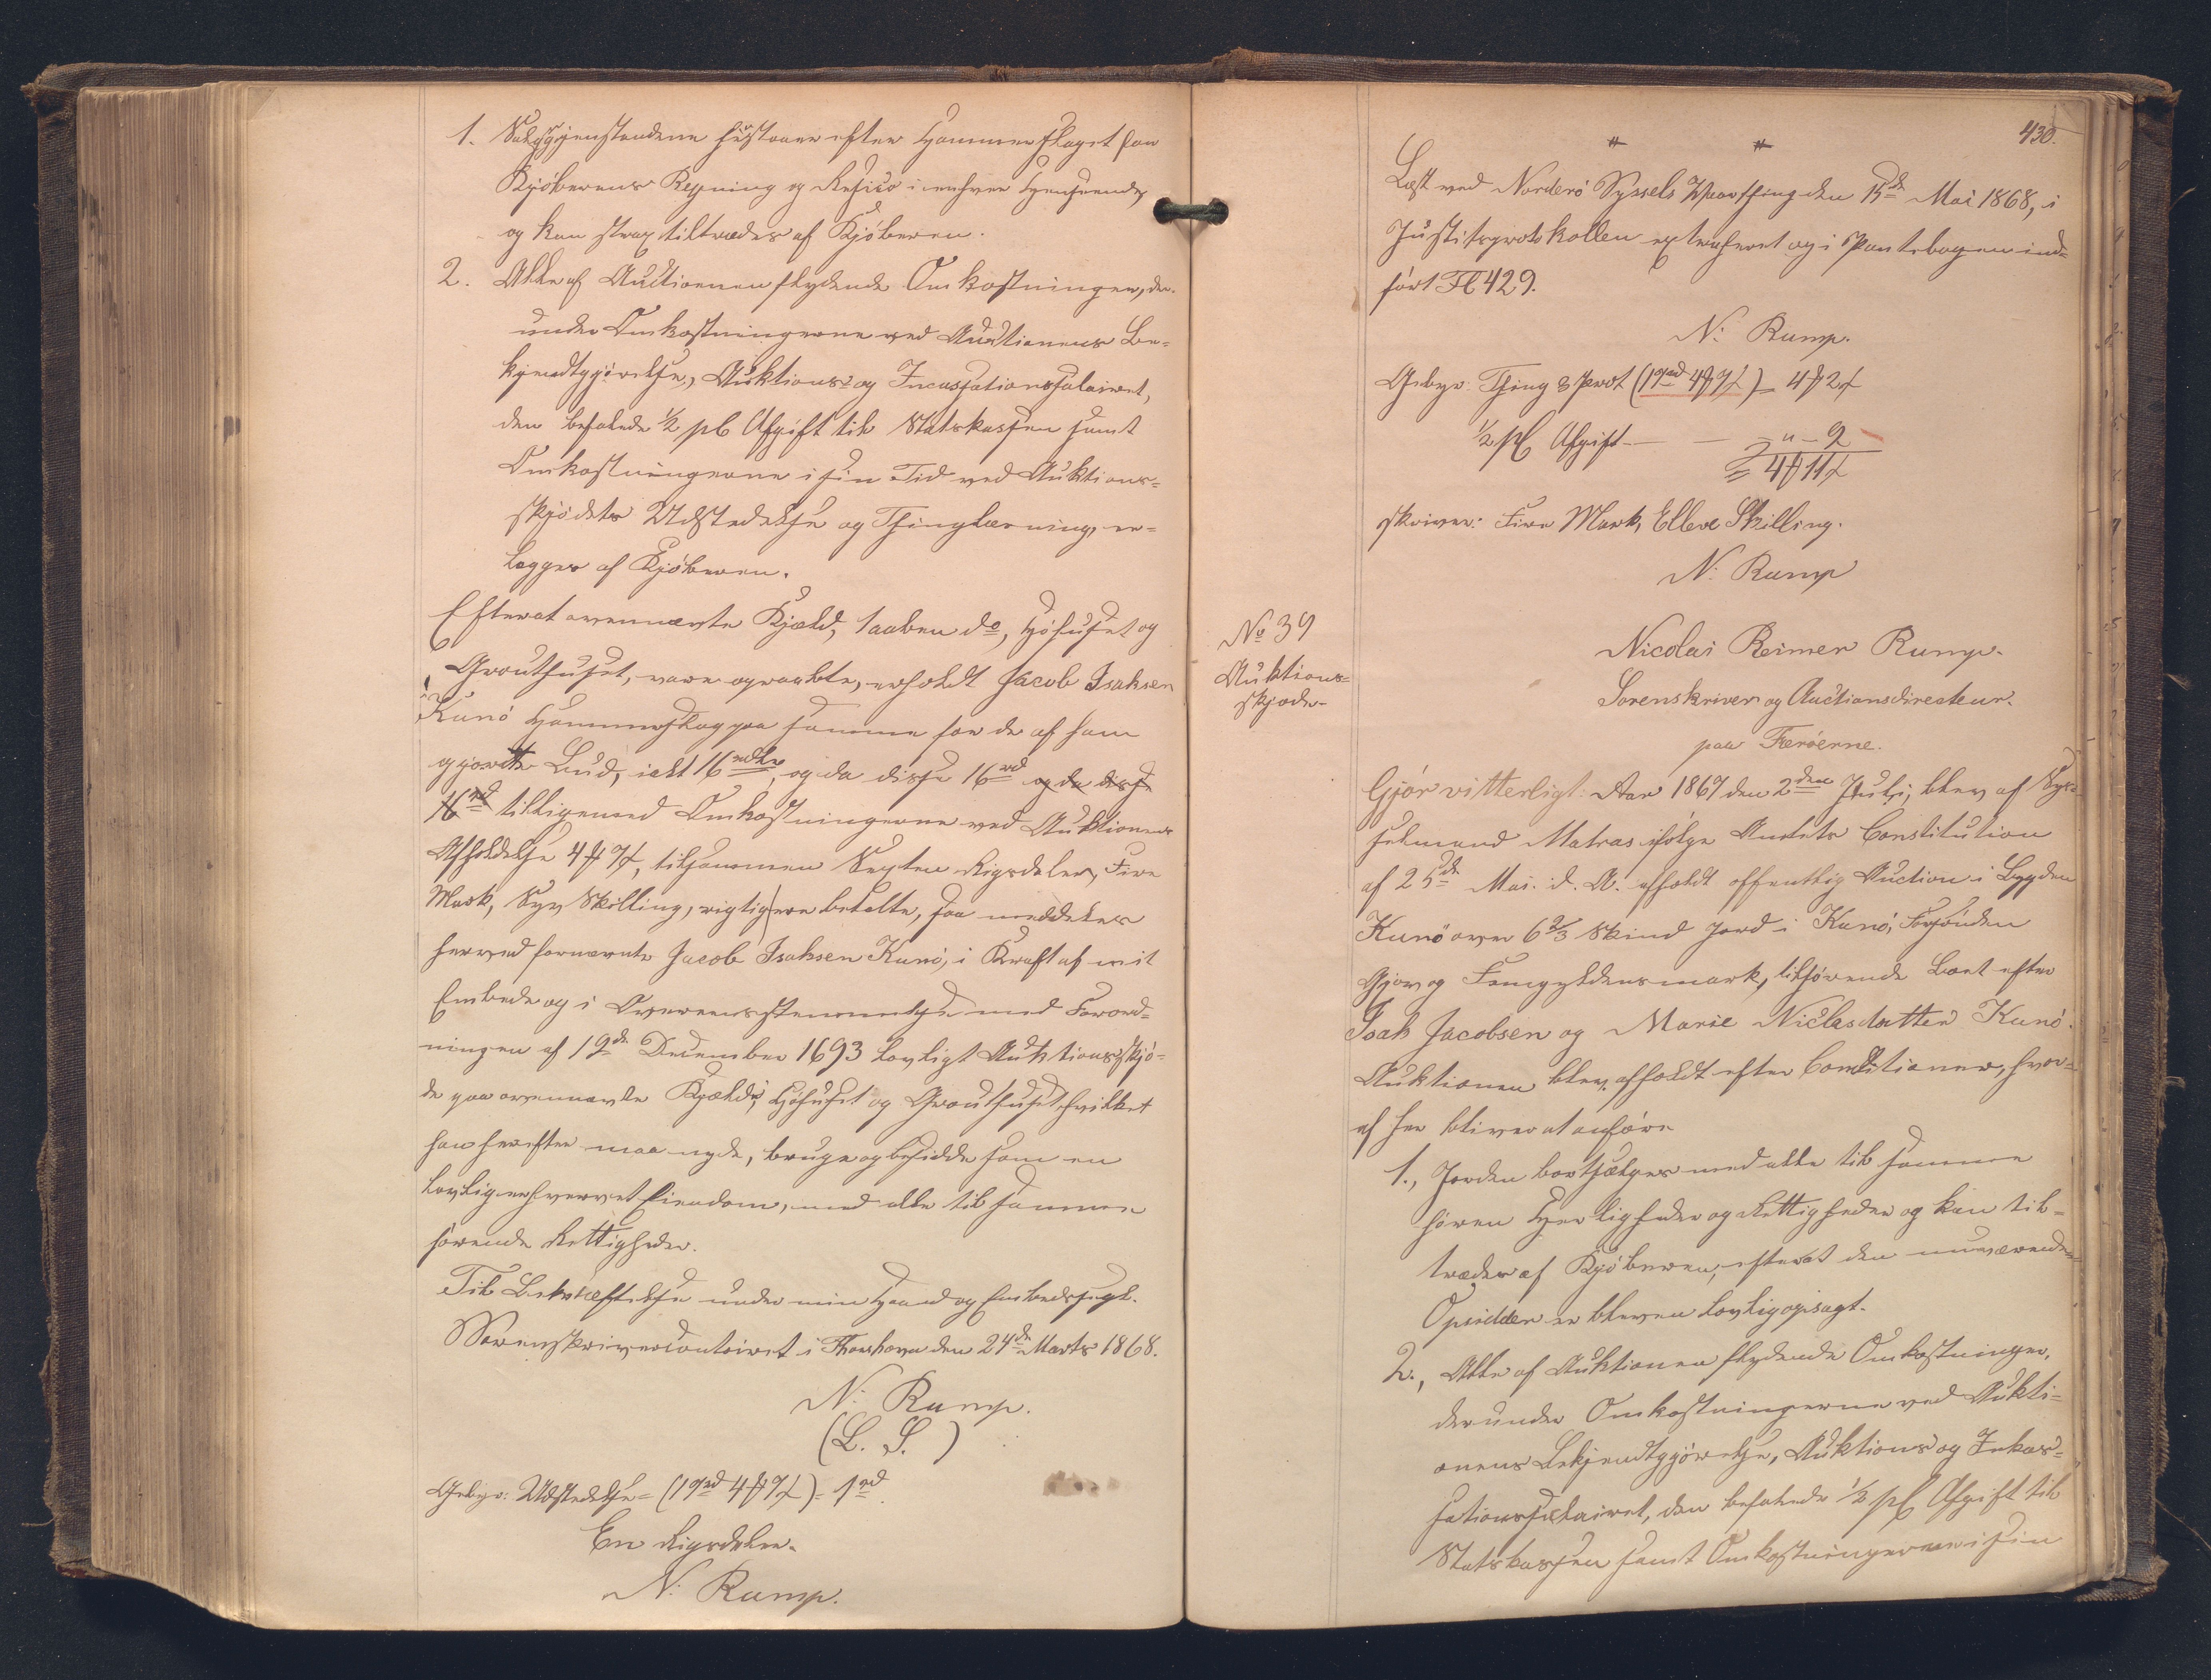 1. Salgsgjenstandene henstaaer efter Hammerslaget for
Kjöberens Regning og Risico i enhver Henseende
og kan strax tiltrædes af Kjöberen.
2. Alle af Auctionen flydende Omkostninger, der-
under Omkostningerne ved Auctionens Be-
kjendtgjörelse, Auktions- og Incassationssalairet,
den befalede ½ pC Afgift til Statskassen samt
Omkostningerne i sin Tid ved Auktions-
skjödets Udstedelse og Thinglæsning, er-
lægges af Kjöberen.
Efterat ovennævnte Kjæld, 1 aaben do, Höhuset og
Grouthuset, vare opraabte, erholdt Jacob Isaksen
Kunö Hammerslag paa samme for de af ham
gjorte Bud, ialt 16 rdlr, og da disse 16 rd og da disse
16 rd tilligemed Omkostningerne ved Auktionens
Afholdelse 4 ₻ 7 ß, tilsammen Sexten Rigsdaler, Fire
Mark, Syv Skilling, rigtig ere betalte, saa meddeles
herved fornævnte Jacob Isaksen Kunö, i Kraft af mit
Embede og i Overeensstemmelse med Forord-
ningen af 19de December 1693 lovligt Auktionsskjö-
de paa ovennævnte Kjæld, Höhuset og Grouthuset, hvilket
han herefter maa nyde, bruge og besidde som en
lovlig erhvervet Eiendom, med alle til samme
hörende Rettigheder.
Til Bekræftelse under min Haand og Embedssegl.
Sorenskrivercontoiret i Thorshavn den 24de Marts 1868.
N: Rump.
(L. S.)
Gebyr: Udstedelse = (19 rd 4 ₻ 7 ß) = 1 rd
En Rigsdaler.
N: Rump.
430.
Læst ved Norderö Syssels Vaarthing den 15de Mai 1868, i
Justitsprotokollen extraheret og i Pantebogen ind-
fört Fol 429.
N: Rump.
Gebyr: Thing & Prot (19 rd 4 ₻ 7 ß) = 4 ₻ 2 ß
½ pC Afgift — — " - 9
= 4 ₻ 11 ß
skriver: Fire Mark, Elleve Skilling.
N: Rump
No 39
Auktions-
skjöde
Nicolai Reimer Rump.
Sorenskriver og Auctionsdirecteur.
paa Færöerne.
Gjör vitterligt: Aar 1867 den 2den Juli, blev af Sys-
selmand Matras ifölge Amtets Constitution
af 25de Mai. d. A. afholdt offentlig Auction i Bygden
Kunö over 6⅔ Skind Jord i Kunö,
Gjov og Femgyldensmark, tilhörende Boet efter
Isak Jacobsen og Marie Niclasdatter Kunö.
Auktionen blev afholdt efter Conditioner, hvor-
af her bliver at anföre
1., Jorden bortsælges med alle til samme
hören Herligheder og Rettigheder og kan til-
trædes af Kjöberen, efterat den nuværende
Opsidder er bleven lovlig opsagt.
2., Alle af Auktionen flydende Omkostninger,
derunder Omkostningerne ved Aukti-
onens Bekjendtgjörelse, Auktions og Inkas-
sationssalairet, den befalede ½ pC Afgift til
Statskassen samt Omkostningerne i sin